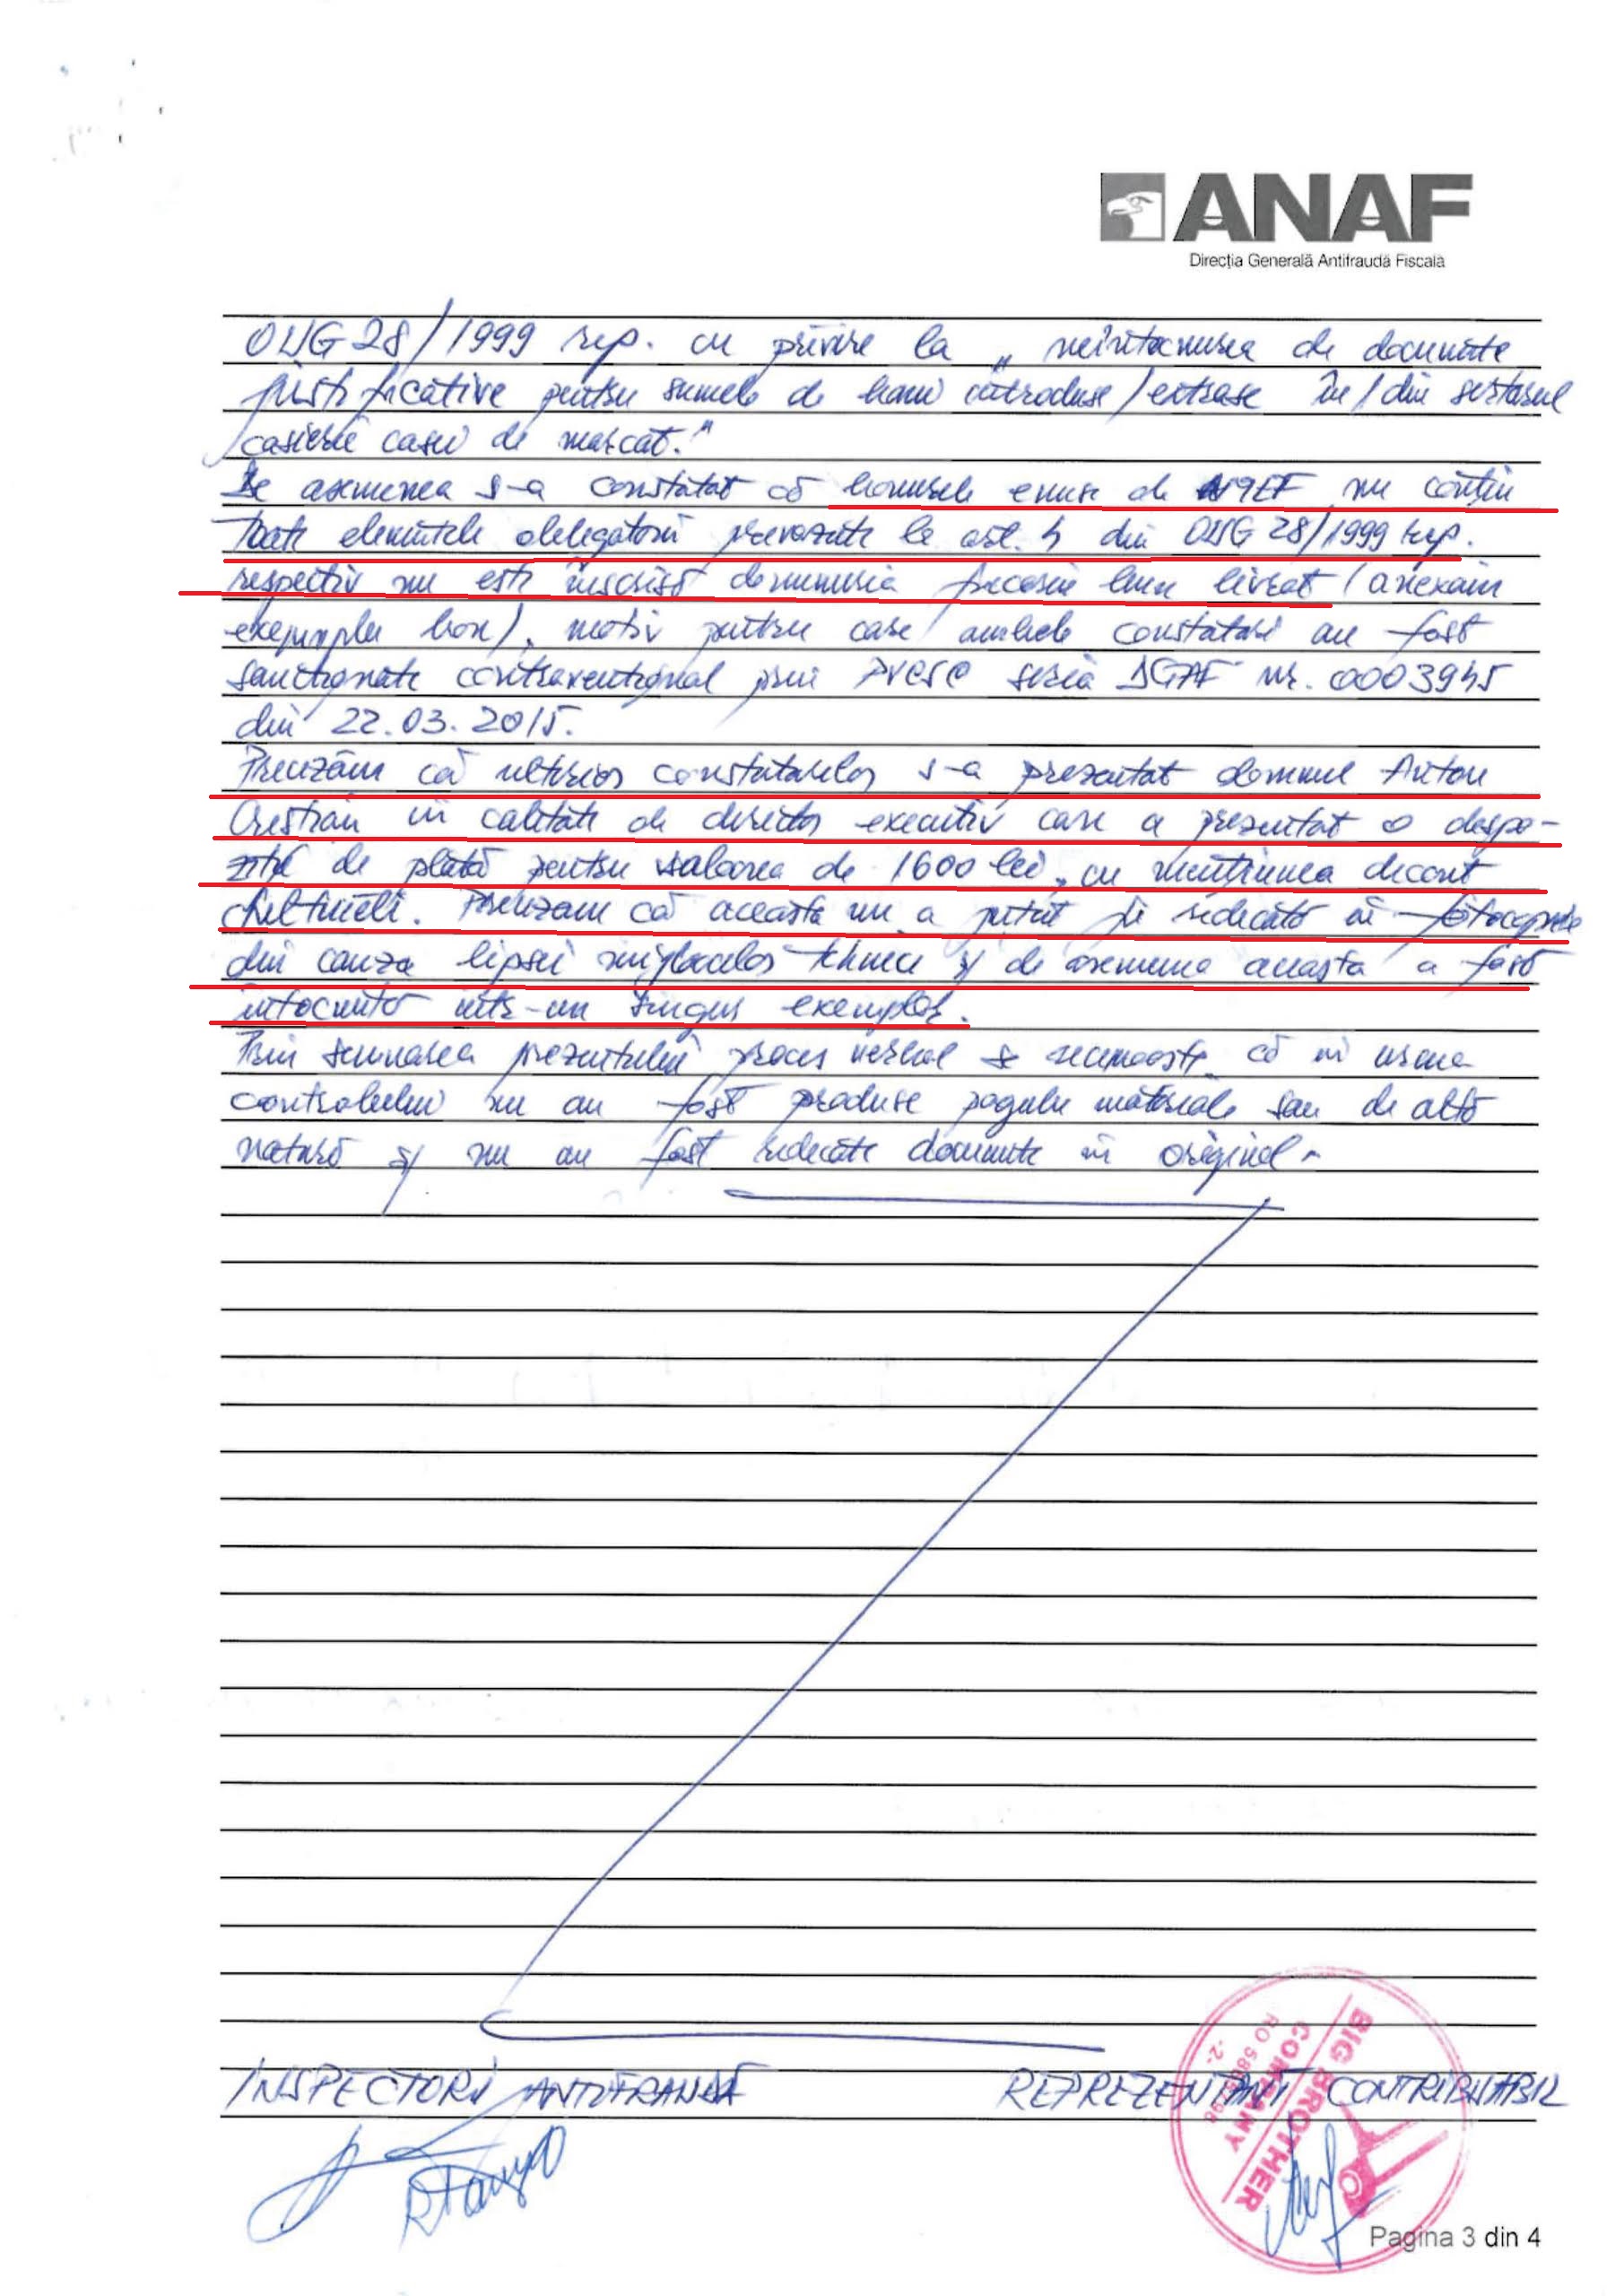 ANAF
Direcția Generală Antifraudă Fiscală
OUG 28/1999 rep. cu privire la „neîntocmirea de documente
justificative pentru sumele de bani introduse/extrase în/din sertarul
casierie casei de marcat."
De asemenea s-a constatat că bonurile emise de AMEF nu conțin
toate elementele obligatorii prevăzute la art. 4 din OUG 28/1999 rep.
respectiv nu este înscrisă denumirea fiecărui bun livrat (anexăm
exemplu bon), motiv pentru care ambele constatări au fost
sancționate contravențional prin PVCSC seria DGAF nr. 0003945
din 22.03.2015.
Precizăm că ulterior constatărilor s-a prezentat domnul Anton
Cristian în calitate de director executiv care a prezentat o dispo-
ziție de plată pentru valoarea de 1600 lei, cu mențiunea decont
cheltuieli. Precizăm că aceasta nu a putut fi ridicată în fotocopie
din cauza lipsei mijloacelor tehnice și de asemenea aceasta a fost
întocmită într-un singur exemplar.
Prin semnarea prezentului proces verbal se recunoaște că în urma
controlului nu au fost produse pagube materiale sau de altă
natură și nu au fost ridicate documente în original.
INSPECTORI ANTIFRAUDĂ
REPREZENTANT CONTRIBUABIL
BIG BROTHER
COMPANY
-2-
Pagina 3 din 4